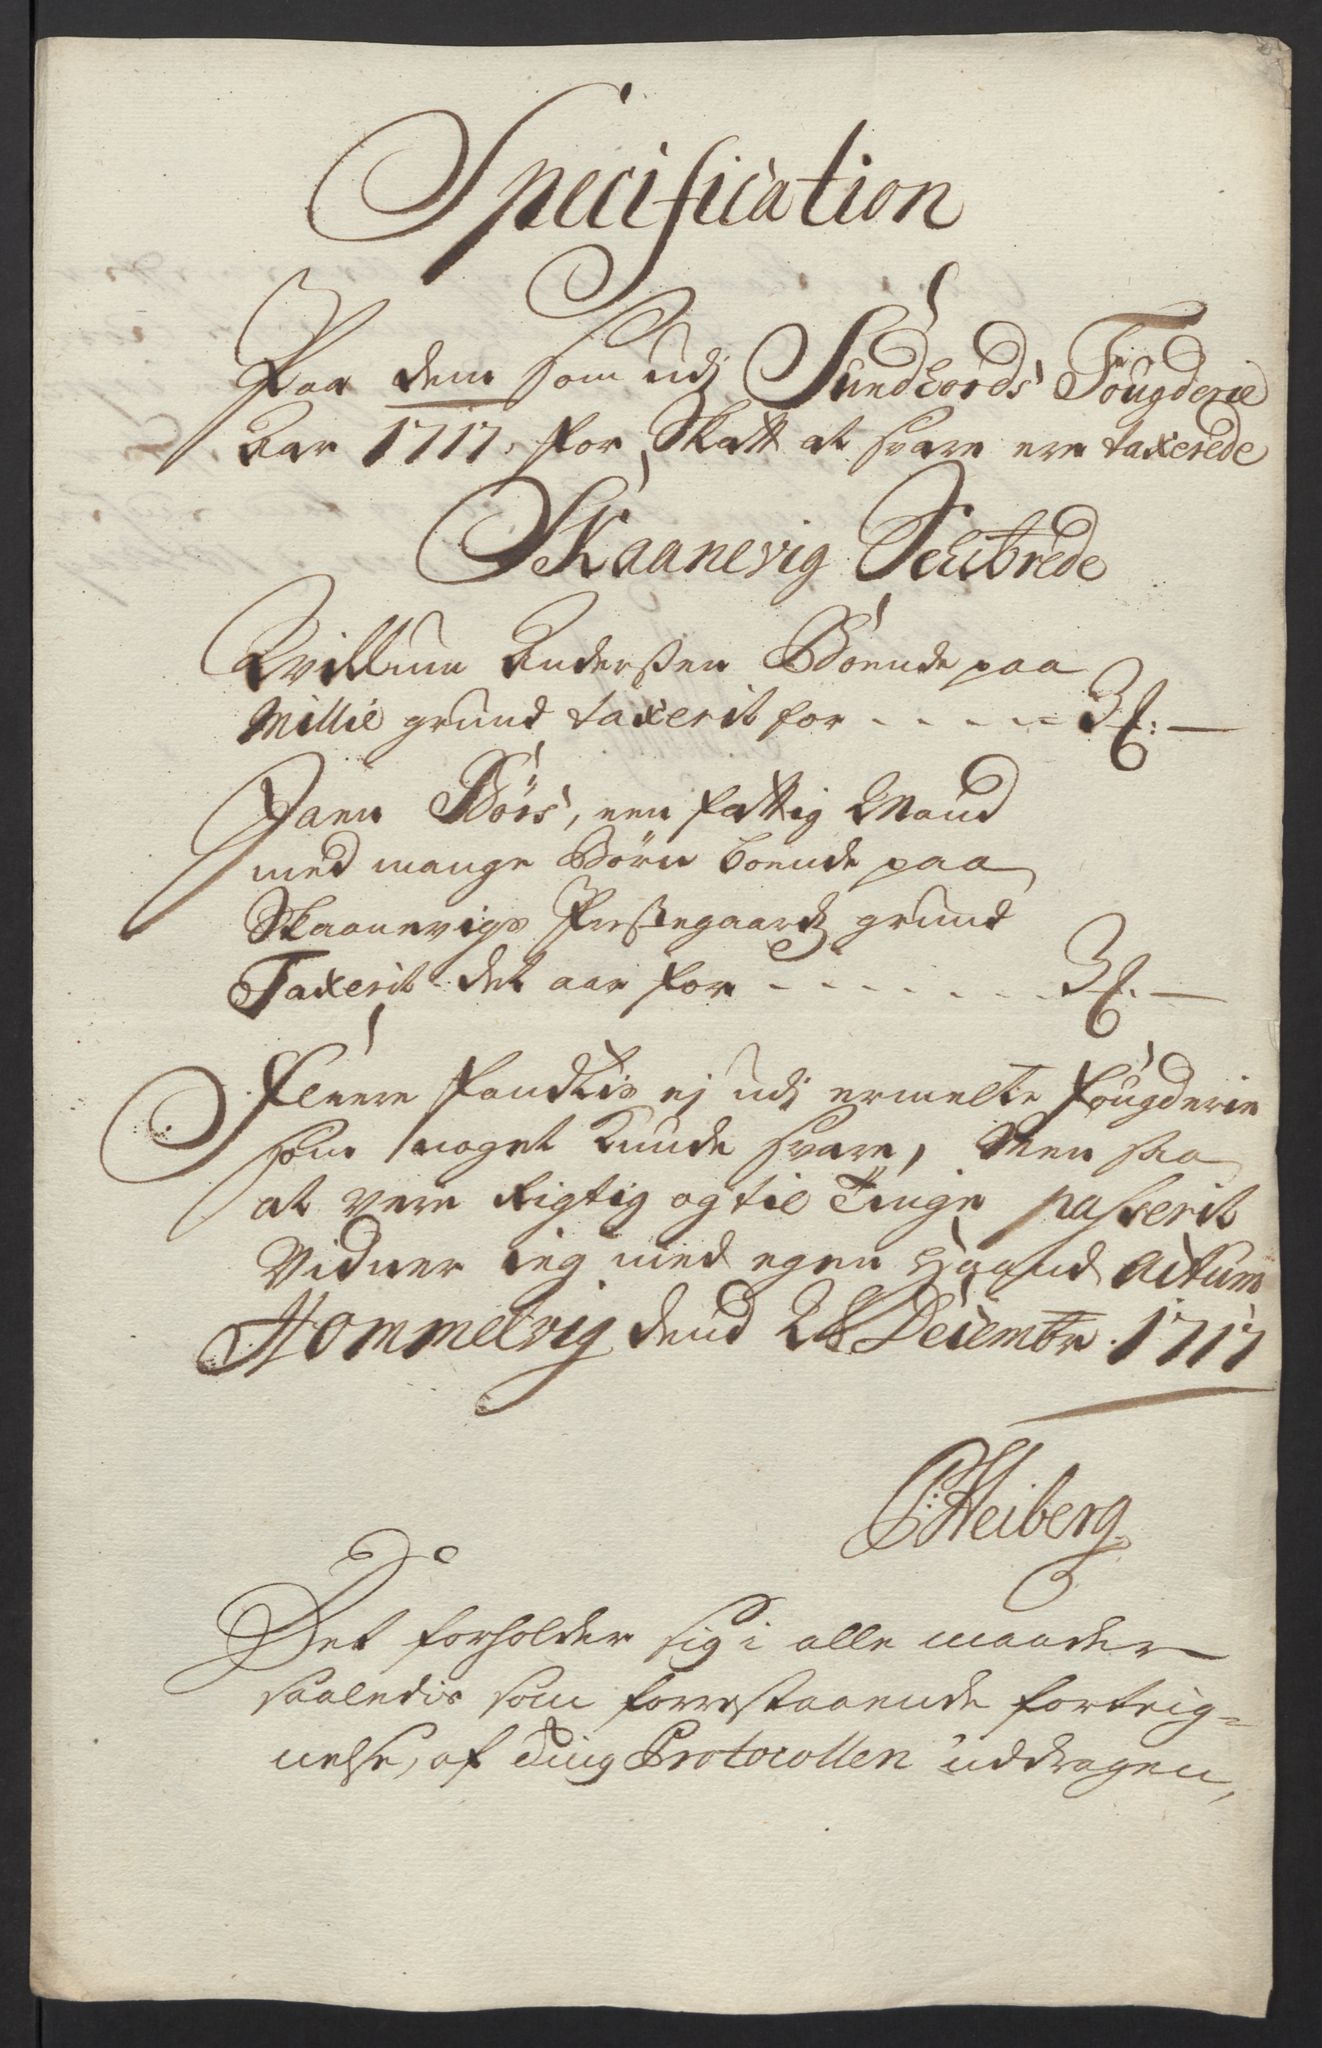 Specification
Paa dem som udj Sundhords Fougderie
Aar 1717 for Skatt at svare ere taxerede
Skaanevig Schibrede
Villum Anderssen Boende paa
Millie grund taxerit for - - - - - 3 ſ: —
Jaen Börs, een fattig Mand
med mange Börn boende paa
Skaanevigs Prestegaards grund
Taxerit det aar for - - - - - - - 3 ſ. —
Fleere fandtis ej udj ermelte fougderie
som noget kunde svare, Men saa
at vere Rigtig og til Tinge passerit
Vidner ieg med egen Haand Actum
Hommelvig dend 28 Decembr. 1717
Heiberg
Det forholder sig i alle maader
saaledis som forrestaaende forteig-
nelse, af Ting Protocollen uddragen,